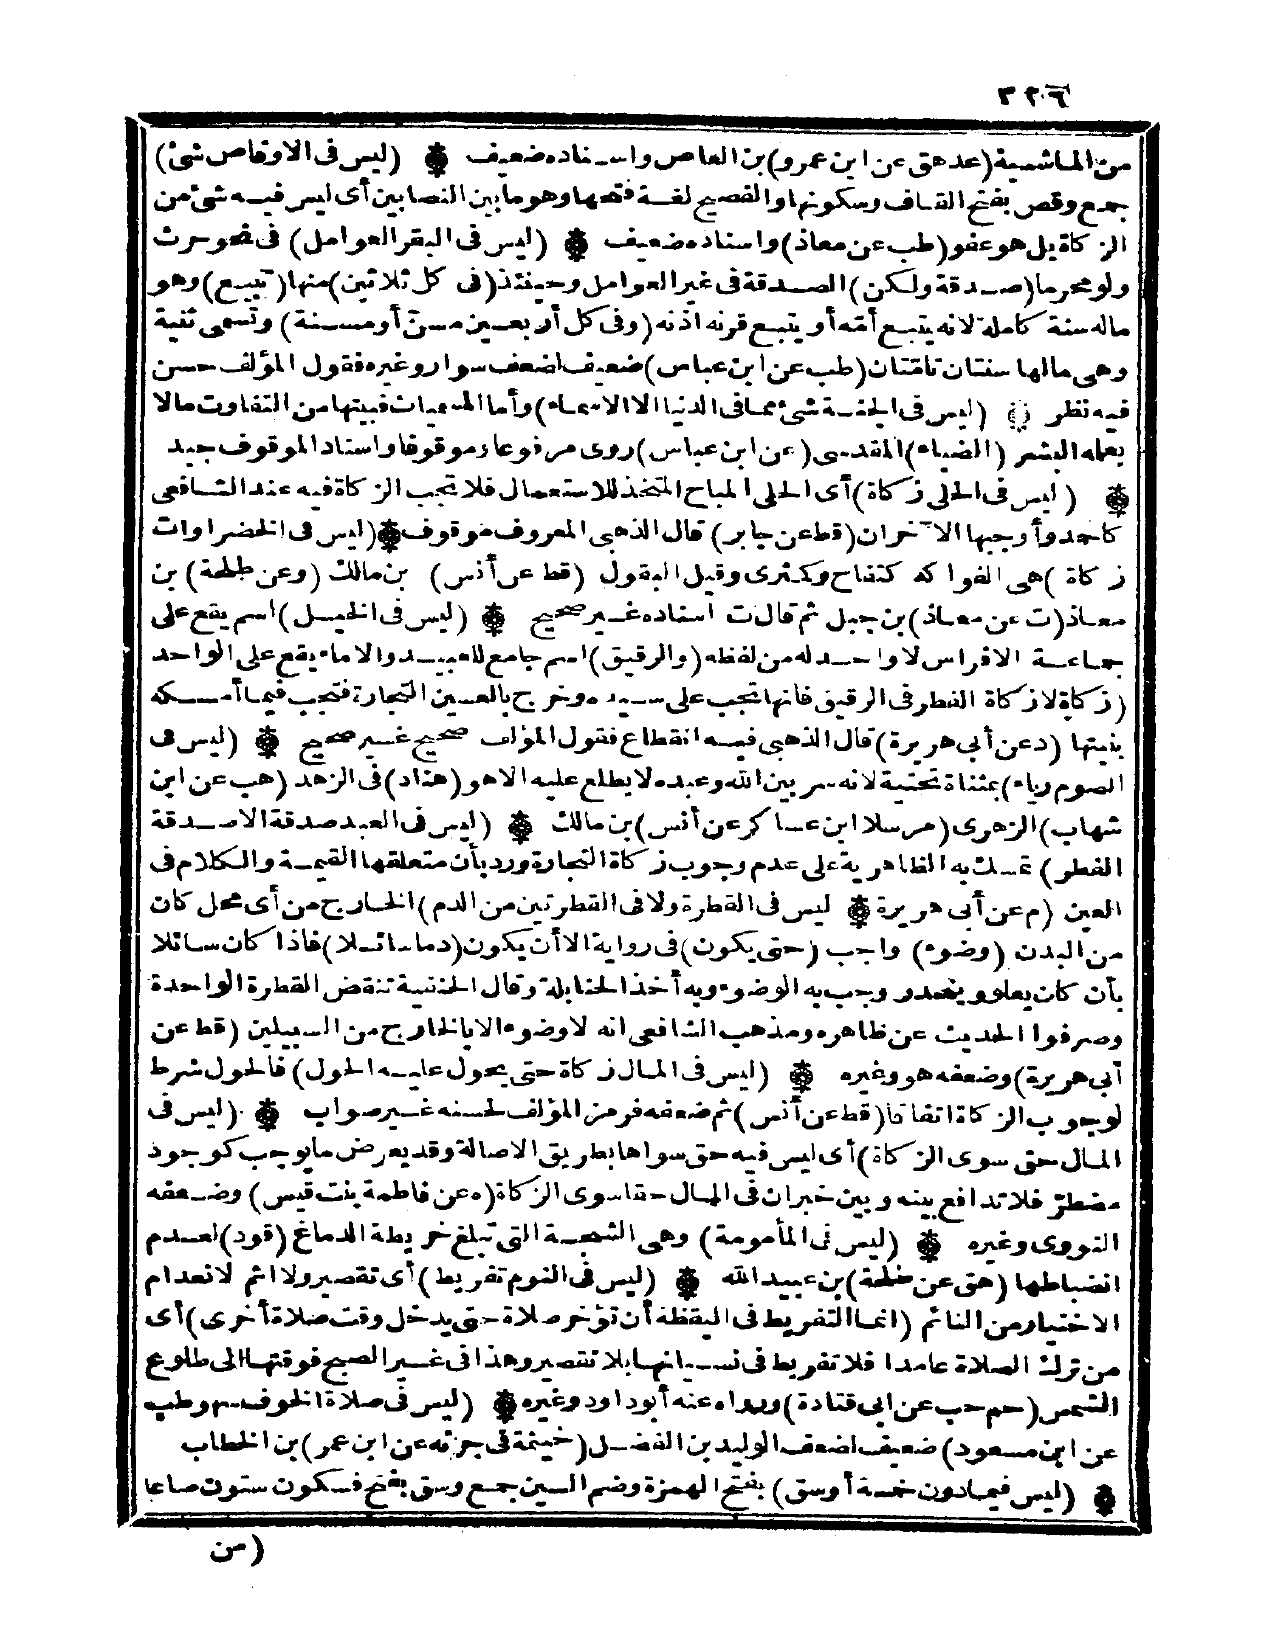 ٣٢٦
من الماشية (عد هق عن ابن عمرو) بن العاص واسناده ضعيف ۞ (ليس فى الاوقاص شئ)
جمع وقص بفتح القاف وسكونها والفصيح لغة فتحها وهو ما بين النصابين أى ليس فيه شئ من
الزكاة بل هو عفو (طب عن معاذ) واسناده ضعيف ۞ (ليس فى البقر العوامل) فى نحو حرث
ولو محرما (صدقة ولكن) الصدقة فى غير العوامل وحينئذ (فى كل ثلاثين) منها (تبيع) وهو
ماله سنة كاملة لانه يتبع أمه أو يتبع قرنه اذنه (وفى كل أربعين مسن أو مسنة) وتسمى ثنية
وهى مالها سنتان تامتان (طب عن ابن عباس) ضعيف لضعف سوار وغيره فقول المؤلف حسن
فيه نظر ۞ (ليس فى الجنة شئ مما فى الدنيا الا الاسماء) وأما المسميات فبينها من التفاوت مالا
يعلمه البشر (الضياء) المقدسى (عن ابن عباس) روى مرفوعا وموقوفا واسناد الموقوف جيد
۞ (ليس فى الحلى زكاة) أى الحلى المباح المتخذ للاستعمال فلا تجب الزكاة فيه عند الشافعى
كاحمد وأوجبها الآخران (قط عن جابر) قال الذهبى المعروف موقوف ۞ (ليس فى الخضراوات
زكاة) هى الفواكه كتفاح وكمثرى وقيل البقول (قط عن أنس) بن مالك (وعن طلحة) بن
معاذ (ت عن معاذ) بن جبل ثم قال ت اسناده غير صحيح ۞ (ليس فى الخيل) اسم يقع على
جماعة الافراس لا واحد له من لفظه (والرقيق) اسم جامع للعبيد والاماء يقع على الواحد
(زكاة لا زكاة الفطر فى الرقيق فانها تجب على سيده وخرج بالعين التجارة فتجب فيما أمسكه
بنيتها (د عن أبى هريرة) قال الذهبى فيه انقطاع فقول المؤلف صحيح غير صحيح ۞ (ليس فى
الصوم رياء) بمثناة تحتية لانه سر بين الله وعبده لا يطلع عليه الا هو (هناد) فى الزهد (هب عن ابن
شهاب) الزهرى (مرسلا ابن عساكر عن أنس) بن مالك ۞ (ليس فى العبد صدقة الا صدقة
الفطر) تمسك به الظاهرية على عدم وجوب زكاة التجارة ورد بأن متعلقها القيمة والكلام فى
العين (م عن أبى هريرة ۞ ليس فى القطرة ولا فى القطرتين من الدم) الخارج من أى محل كان
من البدن (وضوء) واجب (حتى يكون) فى رواية الا أن يكون (دما سائلا) فاذا كان سائلا
بأن كان يعلو وينحدر وجب به الوضوء وبه أخذ الحنابلة وقال الحنفية تنقض القطرة الواحدة
وصرفوا الحديث عن ظاهره ومذهب الشافعى انه لا وضوء الا بالخارج من السبيلين (قط عن
أبى هريرة) وضعفه هو وغيره ۞ (ليس فى المال زكاة حتى يحول عليه الحول) فالحول شرط
لوجوب الزكاة اتفاقا (قط عن أنس) ثم ضعفه فرمز المؤلف لحسنه غير صواب ۞ (ليس فى
المال حق سوى الزكاة) أى ليس فيه حق سواها بطريق الاصالة وقد يعرض ما يوجب كوجود
مضطر فلا تدافع بينه وبين خبر ان فى المال حقا سوى الزكاة (ه عن فاطمة بنت قيس) وضعفه
النووى وغيره ۞ (ليس فى المأمومة) وهى الشجة التى تبلغ خريطة الدماغ (قود) لعدم
انضباطها (هق عن طلحة) بن عبيد الله ۞ (ليس فى النوم تفريط) أى تقصير ولا اثم لانعدام
الاختيار من النائم (انما التفريط فى اليقظة أن تؤخر صلاة حتى يدخل وقت صلاة أخرى) أى
من ترك الصلاة عامدا فلا تفريط فى نسيانها بلا تقصير وهذا فى غير الصبح فوقتها الى طلوع
الشمس (حم حب عن ابى قتادة) ورواه عنه أبو داود وغيره ۞ (ليس فى صلاة الخوف سهو طب
عن ابن مسعود) ضعيف لضعف الوليد بن الفضل (خيثمة فى جزئه عن ابن عمر) بن الخطاب
۞ (ليس فيما دون خمسة أوسق) بفتح الهمزة وضم السين جمع وسق بفتح فسكون ستون صاعا
(من